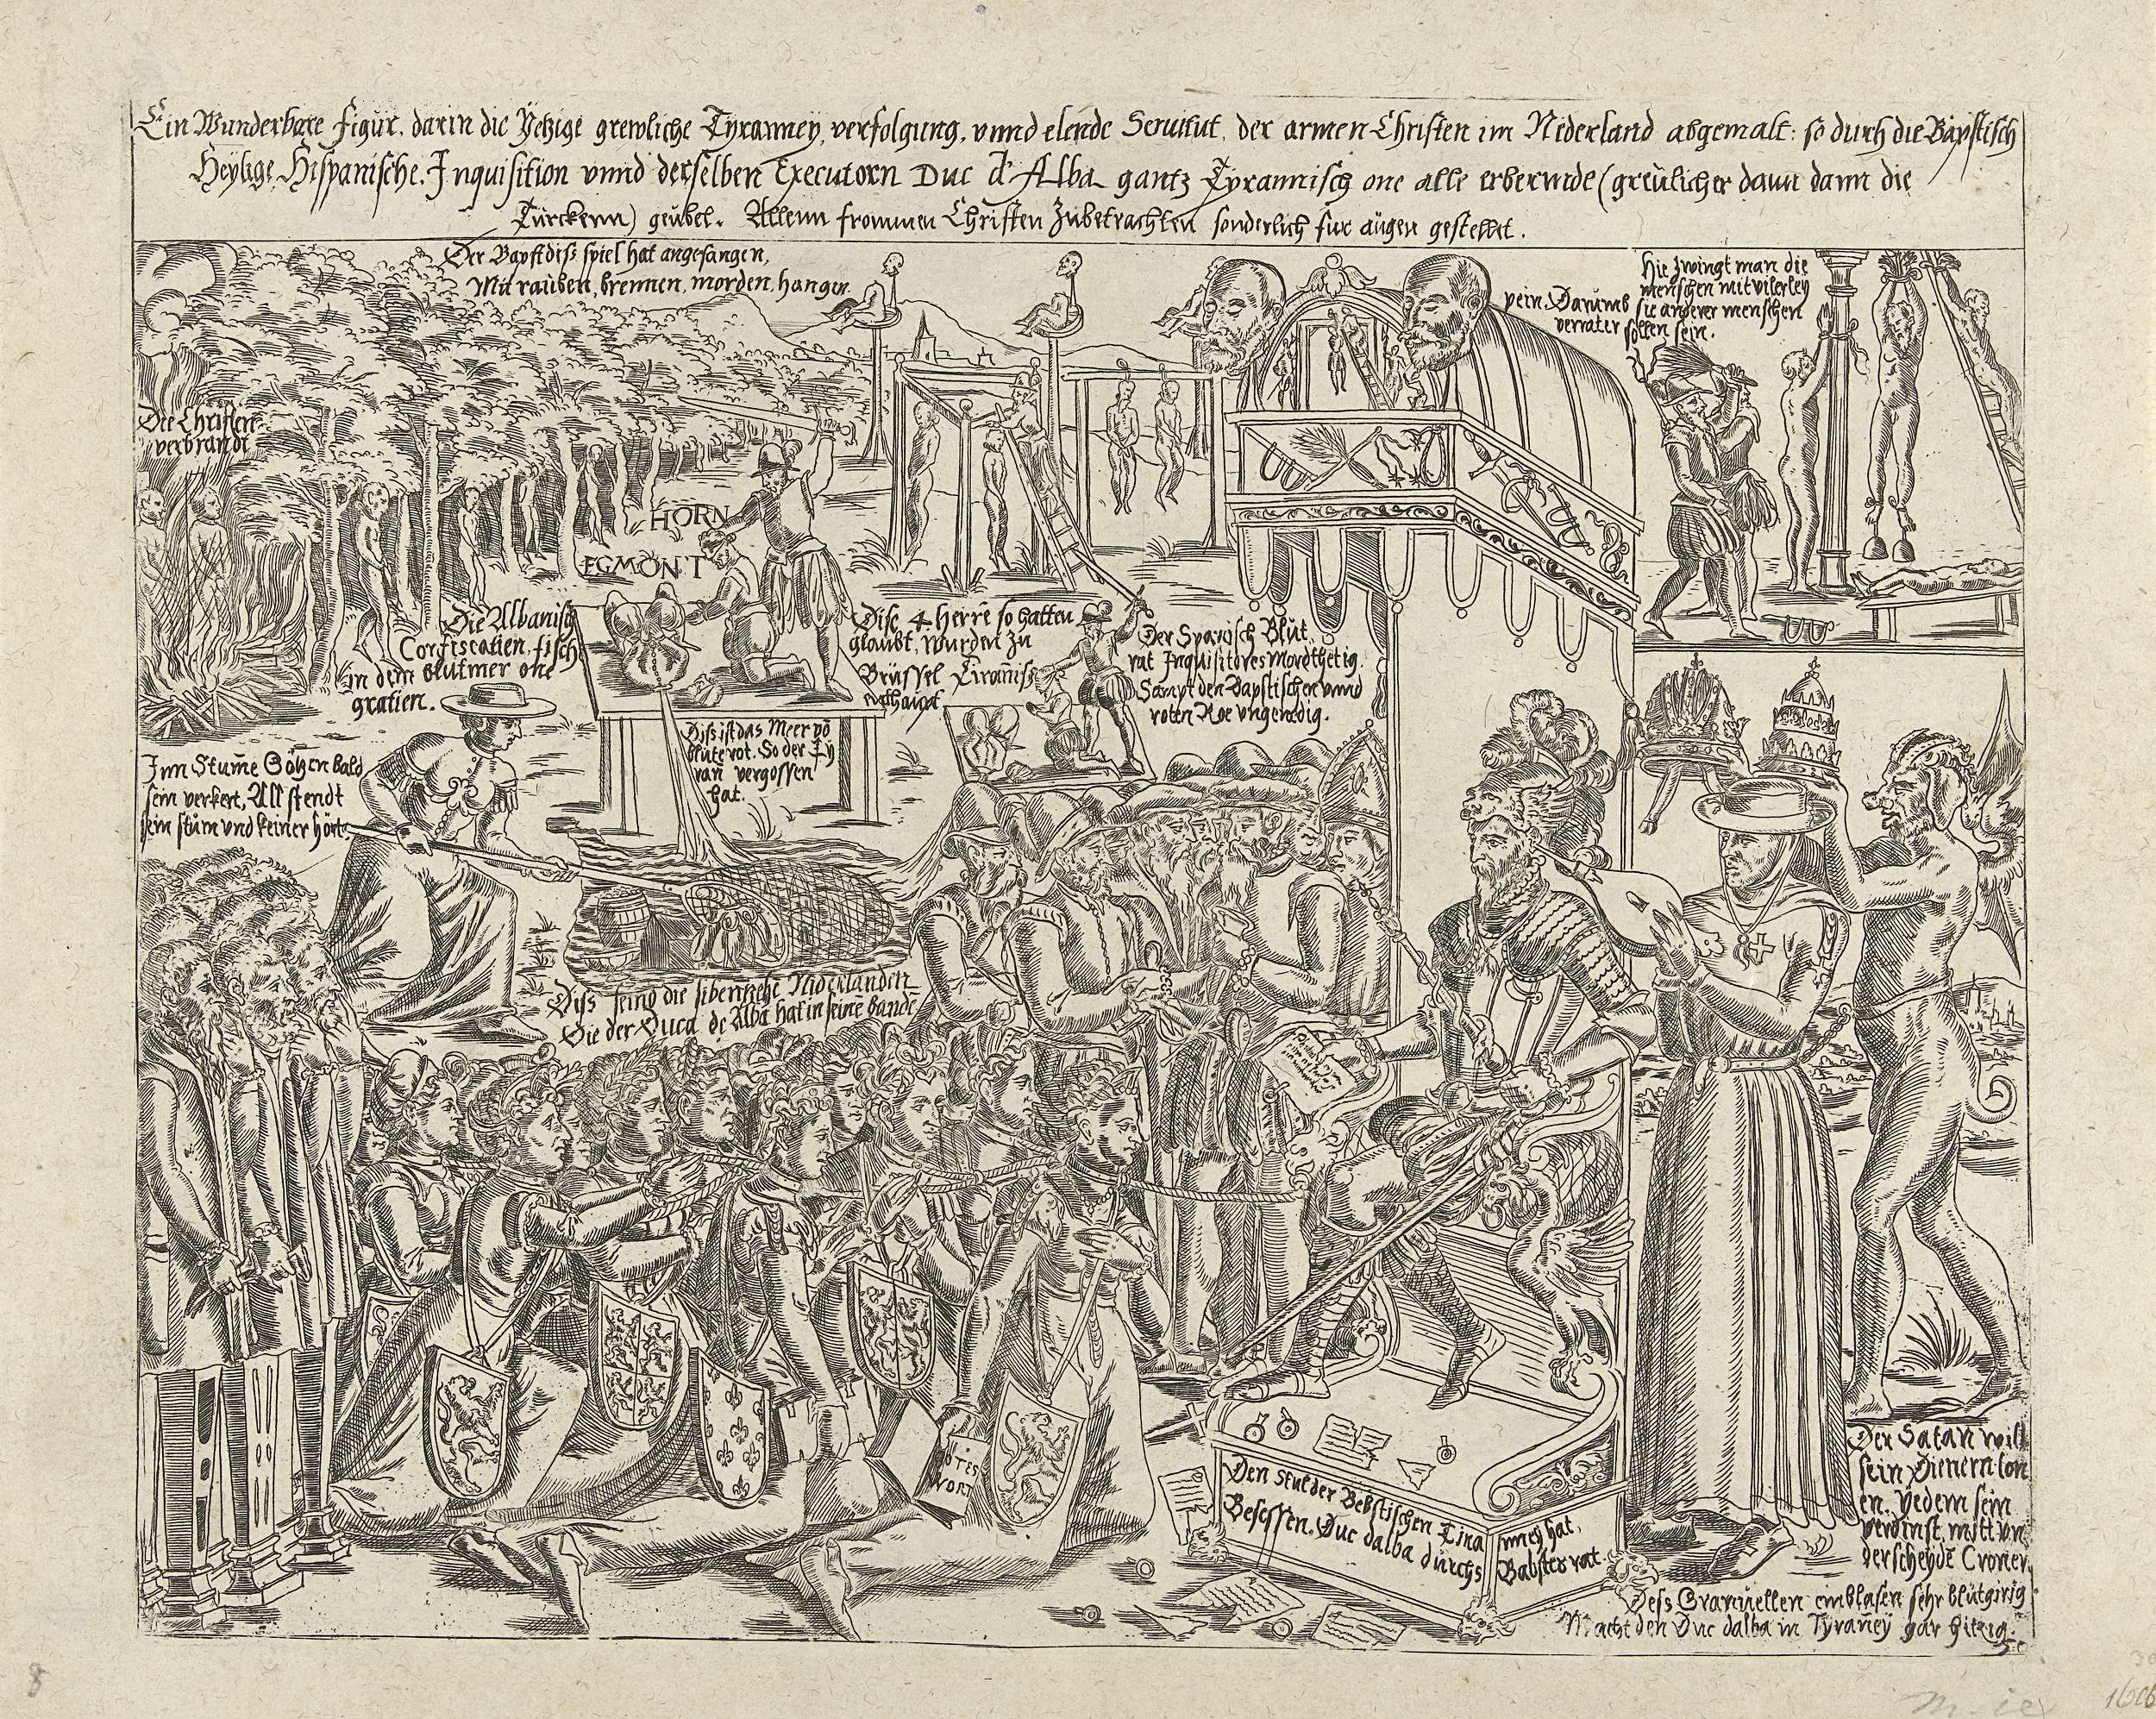 Ein Wunderbare figur, darin die Yetzige grewliche Tyranney, verfolgung, vnnd elende Seruitut, der armen Christen im Niderland abgemalt: so durch die Bapstisch
Heylige Hispanische Inquisition vnnd derselben Executorn Duc d'Alba gantz Tyrannisch one alle erbermde (greulicher dann dann die
Türckenn) geübet. Allenn frommen Christen Zubetrachten sonderlich fur augen gestellet.
Der Bapst diss spiel hat angefangen,
Mit rauben, brennen, morden, hangen
Hie zwingt man die
menschen mit vilerley
pein. Darumb sie anderer menschen
verräter sollen sein.
Die Christen
verbrandt
HORN
EGMONT
Die Albanisch
Confiscatien, fischt
in dem blutmer one
gratien.
Dise 4 herre so hatten
glaubt, wurden zu
Brüssel Tiranisch
Der Spanisch Blut
rat Inquisitores Mordthetig.
Sampt den Bapstischen vnnd
roten Roc vngenedig.
Diss ist das Meer vō
blute rot. So der Ty
ran vergossen
hat.
Inn Stume Götzen bald
sein verkert, All stendt
sein stum vnd keiner hört
Diss seind die sibenzehe Niderlanden
Die der Duca de Alba hat in seine bande
OTES
WORT
Den Stul der Bebstischen Tiranney hat,
Besessen. Duc dalba durchs Babstes rat.
Der Satan will
sein Dienern lon
en. Yedem sein
verdinst, mitt vn
derscheyde Cronen
Dess Granuellen einblasen sehr blütgirig
Macht den Duc dalba in Tyraney gar hitzig.